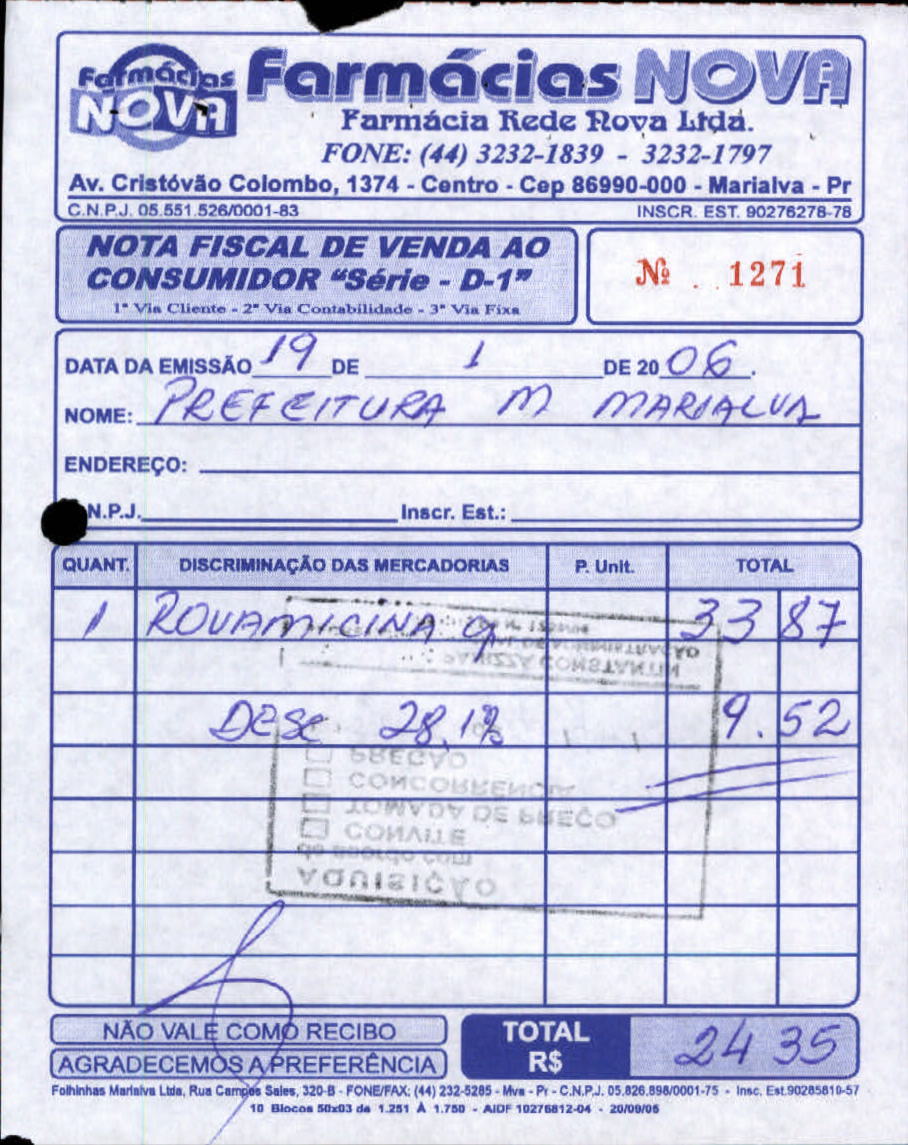 Farmácias NOVA
Farmácias NOVA
Farmácia Rede Nova Ltda.
FONE: (44) 3232-1839 - 3232-1797
Av. Cristóvão Colombo, 1374 - Centro - Cep 86990-000 - Marialva - Pr
C.N.P.J. 05.551.526/0001-83 INSCR. EST. 90276278-78
NOTA FISCAL DE VENDA AO
CONSUMIDOR "Série - D-1"
1ª Via Cliente - 2ª Via Contabilidade - 3ª Via Fixa
Nº 1271
DATA DA EMISSÃO 19 DE 1 DE 20 06.
NOME: PREFEITURA M MARIALVA
ENDEREÇO:
N.P.J. Inscr. Est.:
QUANT. DISCRIMINAÇÃO DAS MERCADORIAS P. Unit. TOTAL
1 ROVAMICINA 33 87
DE ADMINISTRAÇÃO
PARIZZA CONSTANTIN
DESC 28,1% 9.52
PREGÃO
CONCORRÊNCIA
TOMADA DE PREÇO
CONVITE
de acordo com
AQUISIÇÃO
NÃO VALE COMO RECIBO
AGRADECEMOS A PREFERÊNCIA
TOTAL R$ 24 35
Folhinhas Marialva Ltda, Rua Campos Sales, 320-B - FONE/FAX: (44) 232-5285 - Mva - Pr - C.N.P.J. 05.826.898/0001-75 - Insc. Est.90285810-57
10 Blocos 50x03 de 1.251 À 1.750 - AIDF 10276812-04 - 20/09/05